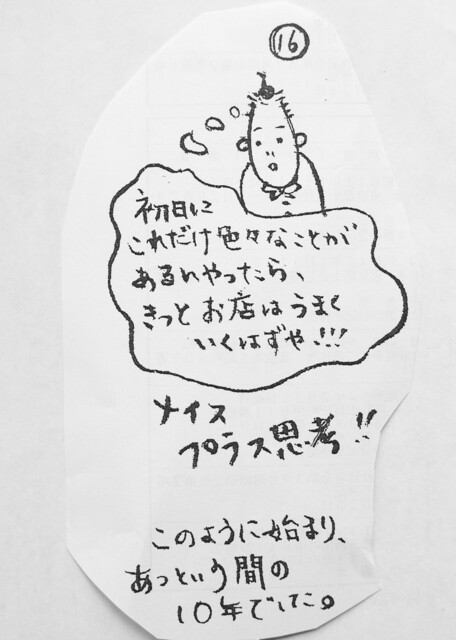 16
初日に
これだけ色々なことが
あるんやったら、
きっとお店はうまく
いくはずや!!!
ナイス
プラス思考!!
このように始まり、
あっという間の
10年でした。